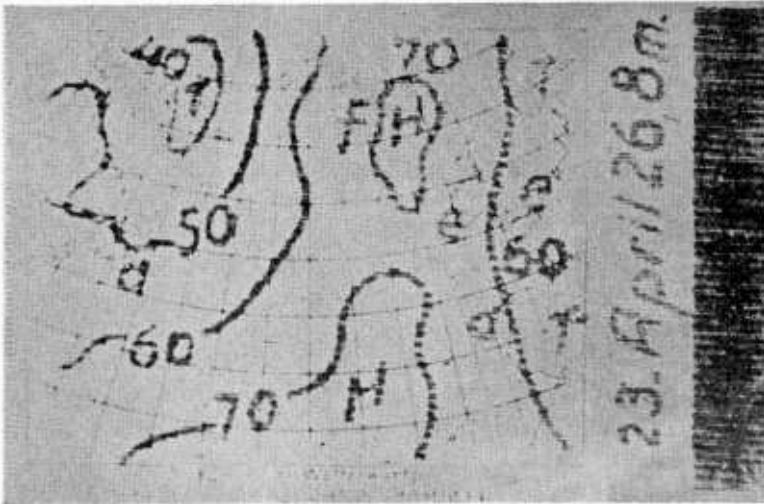 40
T
70
F H
50
60
H
70
50
23. April 26, 8 m.